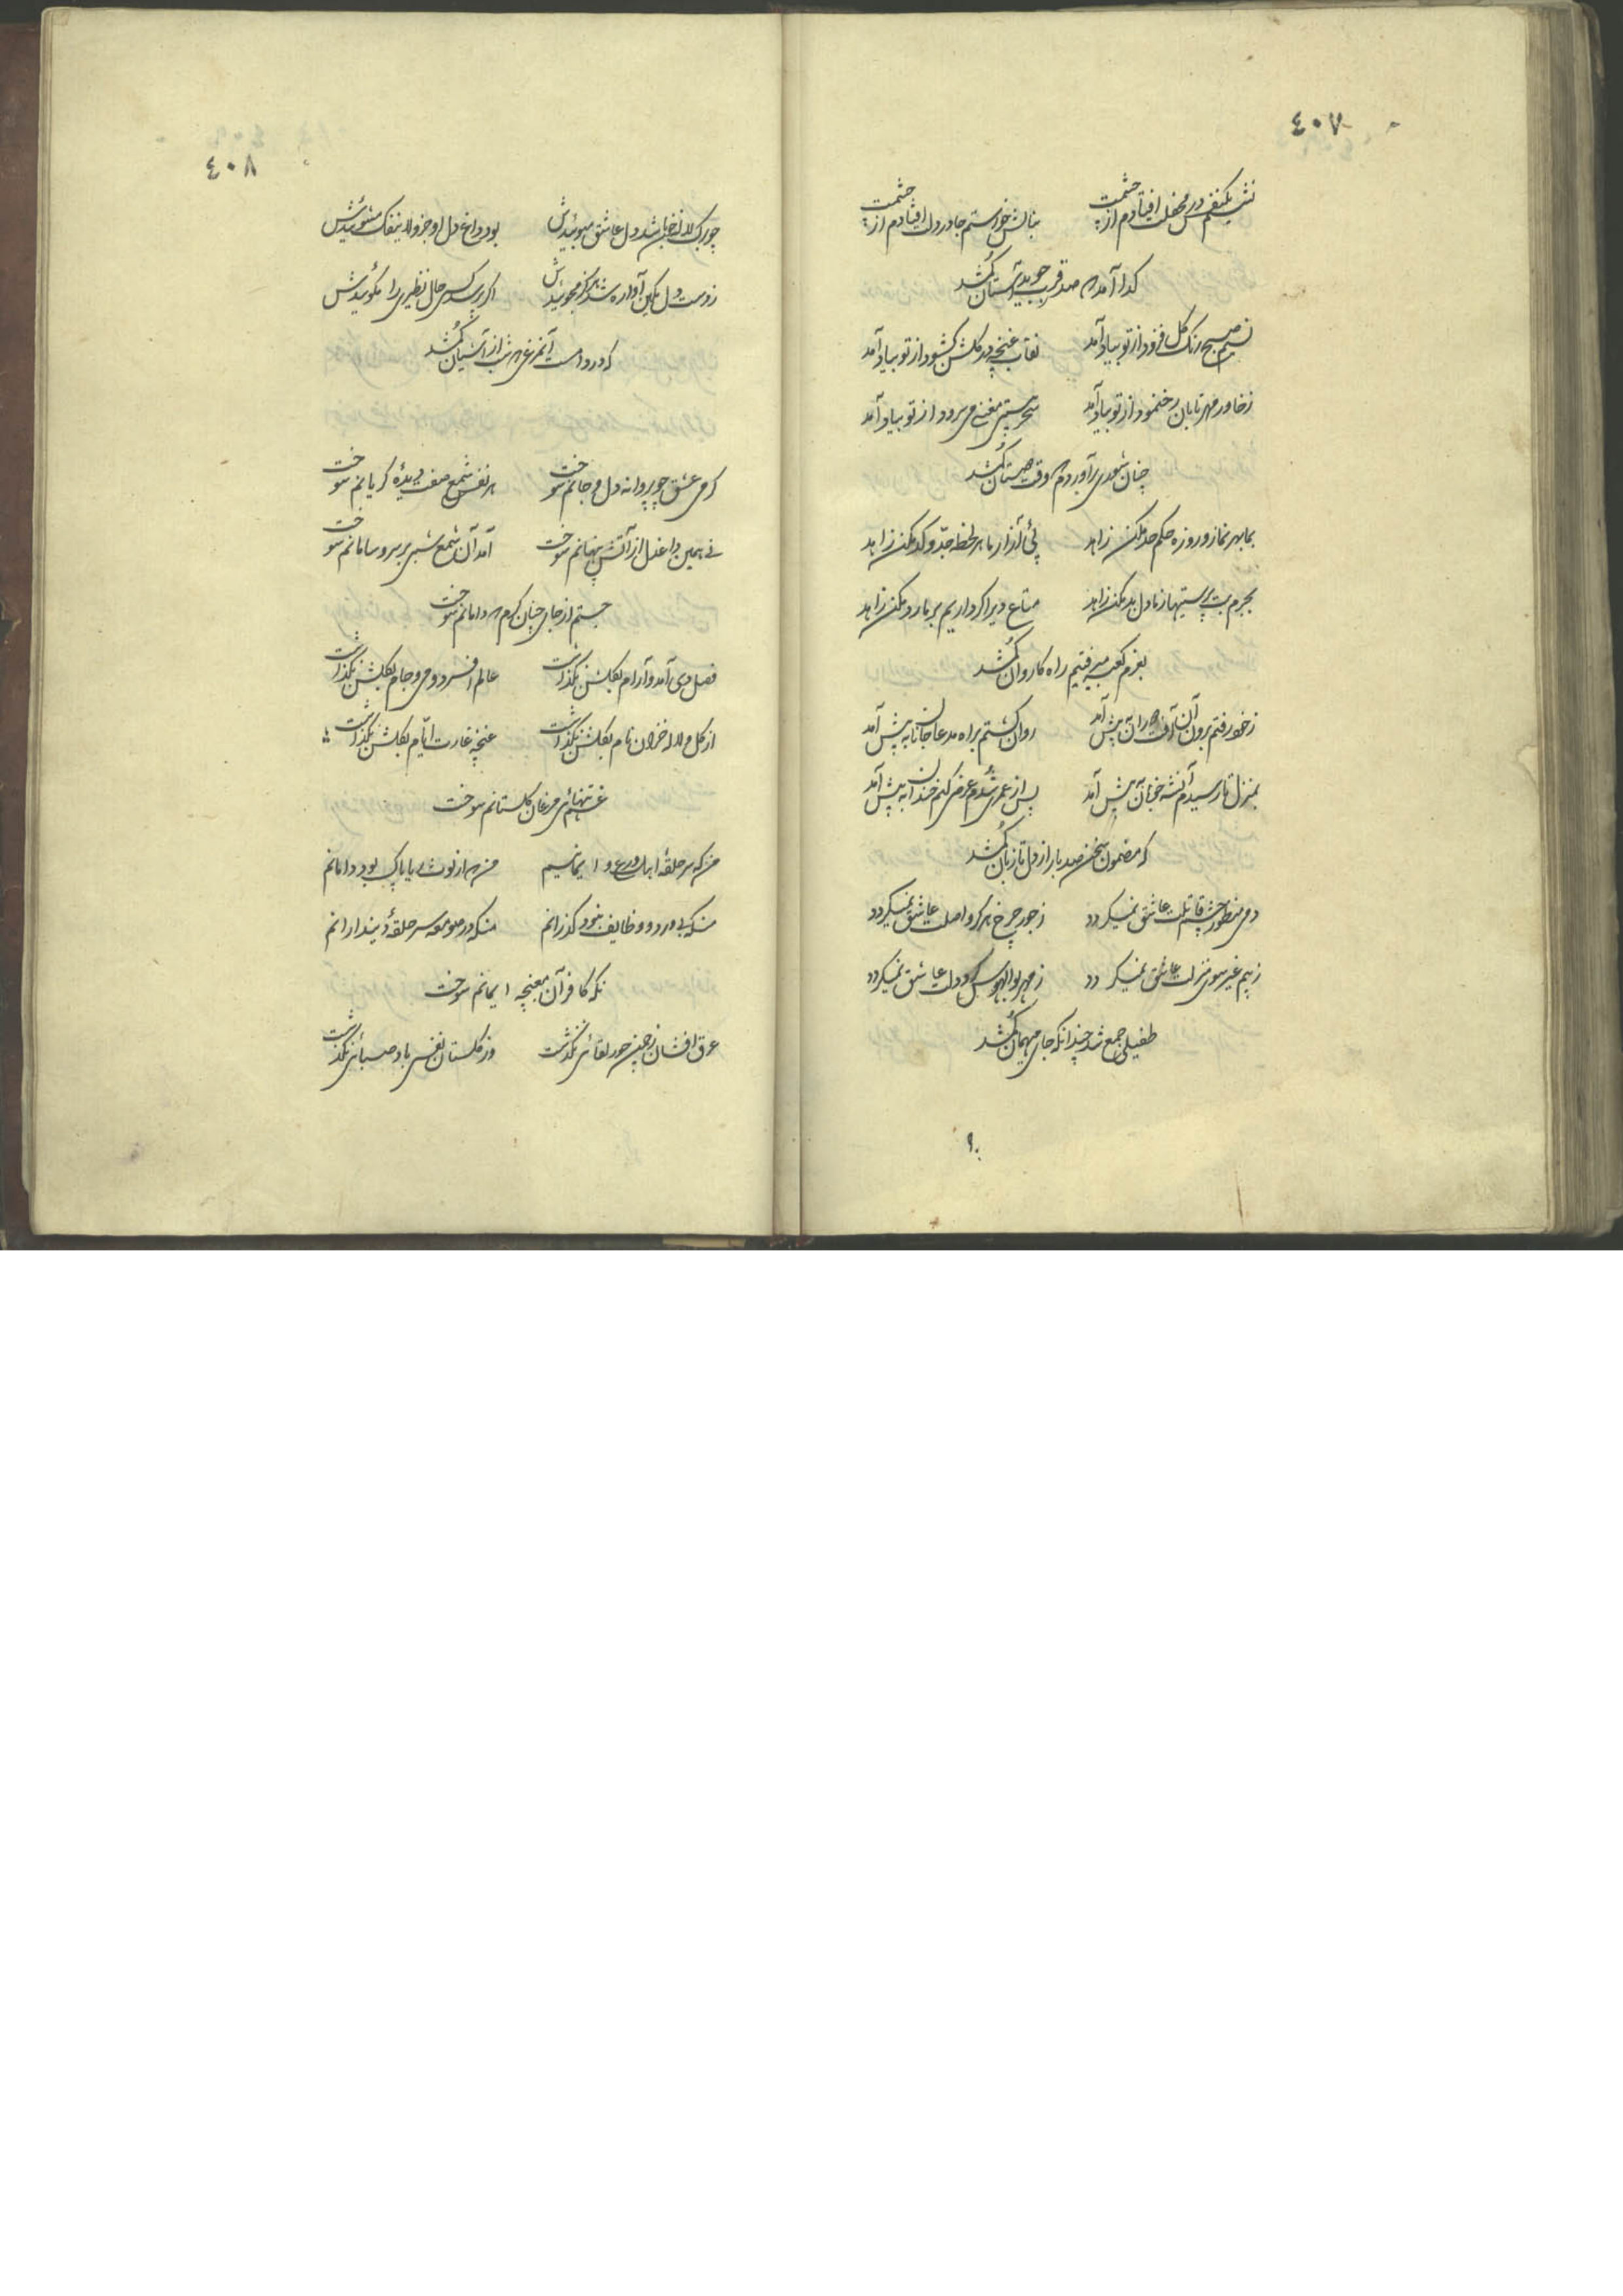 ٤٠٧
نشد یکنفس در محفلت افتادم از چشمت بنالش خواستم جا در دل افتادم از چشمت
کدا آمد صد قرب جوید آستان کم شد
نسیم صبح رنک کل فزود از تو بیاد آمد نقاب غنچه در کلشن کشود از تو بیاد آمد
زخاور مهر تابان رخ نمود از تو بیاد آمد سحر مستی مغنی می سرود از تو بیاد آمد
چنان شوری برآوردم که وقت کم شد
بما بهر نماز و روزه حکم حد مکن زاهد پئی آزار ما هر لحظه جد و کد مکن زاهد
بجرم بت پرستیها ز ما دل بد مکن زاهد متاع دیر اکر داریم بر ما رد مکن زاهد
بعزم کعبه میرفتیم راه کاروان کم شد
زخود رفتم برون آن آفت پیش آمد روان کشتم براه مدعا جانانه پیش آمد
بمنزل تا رسیدم آنشه خوبان پیش آمد پس از عمری شدم عرضی کنم خندان پیش آمد
که مضمون سخن صد بار از دل تا زبان کم شد
دمی منظور چشم قاتلت عاشق نمیکردد ز جور چرخ هرکز واصلت عاشق نمیکردد
ز بیم غیر سوی منزلت عاشق نمیکردد ز مهر بوالهوس کرد دلت عاشق نمیکردد
طفیلی جمع شد چندانکه جای مهمان کم شد
٤٠٨
چو برک لاله خوبان شد دل عاشق مبوئیدش بود داغ دل او جزو لاینفک مشوئیدش
ز دست دل آواره شد مجوئیدش اکر پرسد کسی حال نظیری را مکوئیدش
که در دامست آنمرغی که شب از آشیان کم شد
کرمی عشق چو پروانه دل و جانم سوخت هر نفس شمع صفت دیدهٔ کریانم سوخت
نی همین داغ دل از آتش پنهانم سوخت آمد آن شمع شبی بر سر و سامانم سوخت
جستم از جای چنان کرم که دامانم سوخت
فصل دی آمد و آرام بکلشن نکذاشت عالم افسرد و می و جام بکلشن نکذاشت
از کل و لاله خزان نام بکلشن نکذاشت غنچه غارت ایام بکلشن نکذاشت
غم تنهائی مرغان کلستانم سوخت
من که سر حلقهٔ اهل ورع و ایمانیم من که از لوث ریا پاک بود دامانم
منکه بی ورد و وظایف نبود کذرانم منکه در صومعه سر حلقهٔ دیندارانم
نکه کافر آن مغبچه ایمانم سوخت
عرق افشان ز چمن حور لقائی نکذشت وز کلستان نفسی باد صبائی نکذشت